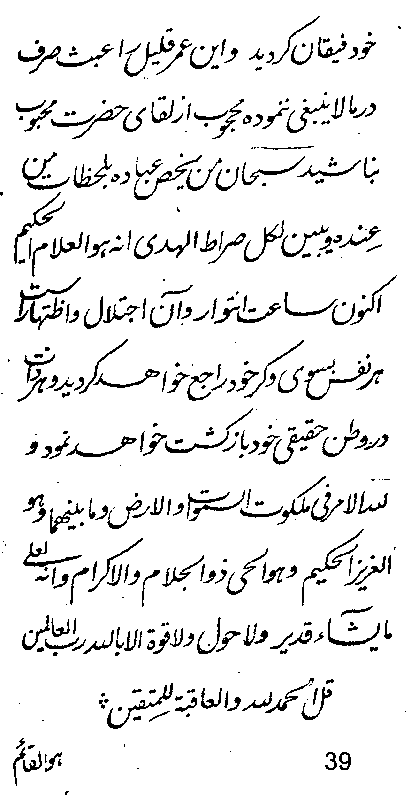 خود فیقان کردید و این عمر قلیل را عبث صرف
در مالاینبغی نموده محجوب از لقای حضرت محبوب
نباشید سبحان من یخص عباده بلحظات من
عنده و یبین لکل صراط الهدی انه هو العلام الحکیم
اکنون ساعت انتوار و آن اجتلال و اظتهار است
هر نفس بسوی وکر خود راجع خواهد کردید و هر ذات
در وطن حقیقی خود بازکشت خواهد نمود و
لله الامر فی ملکوت السموات و الارض و ما بینهما و هو
العزیز الحکیم و هو الحی ذو الجلام و الاکرام و انه لعلی
ما یشاء قدیر و لا حول و لا قوة الا بالله رب العالمین
قل الحمد لله و العاقبة للمتقین
39 هو القائم